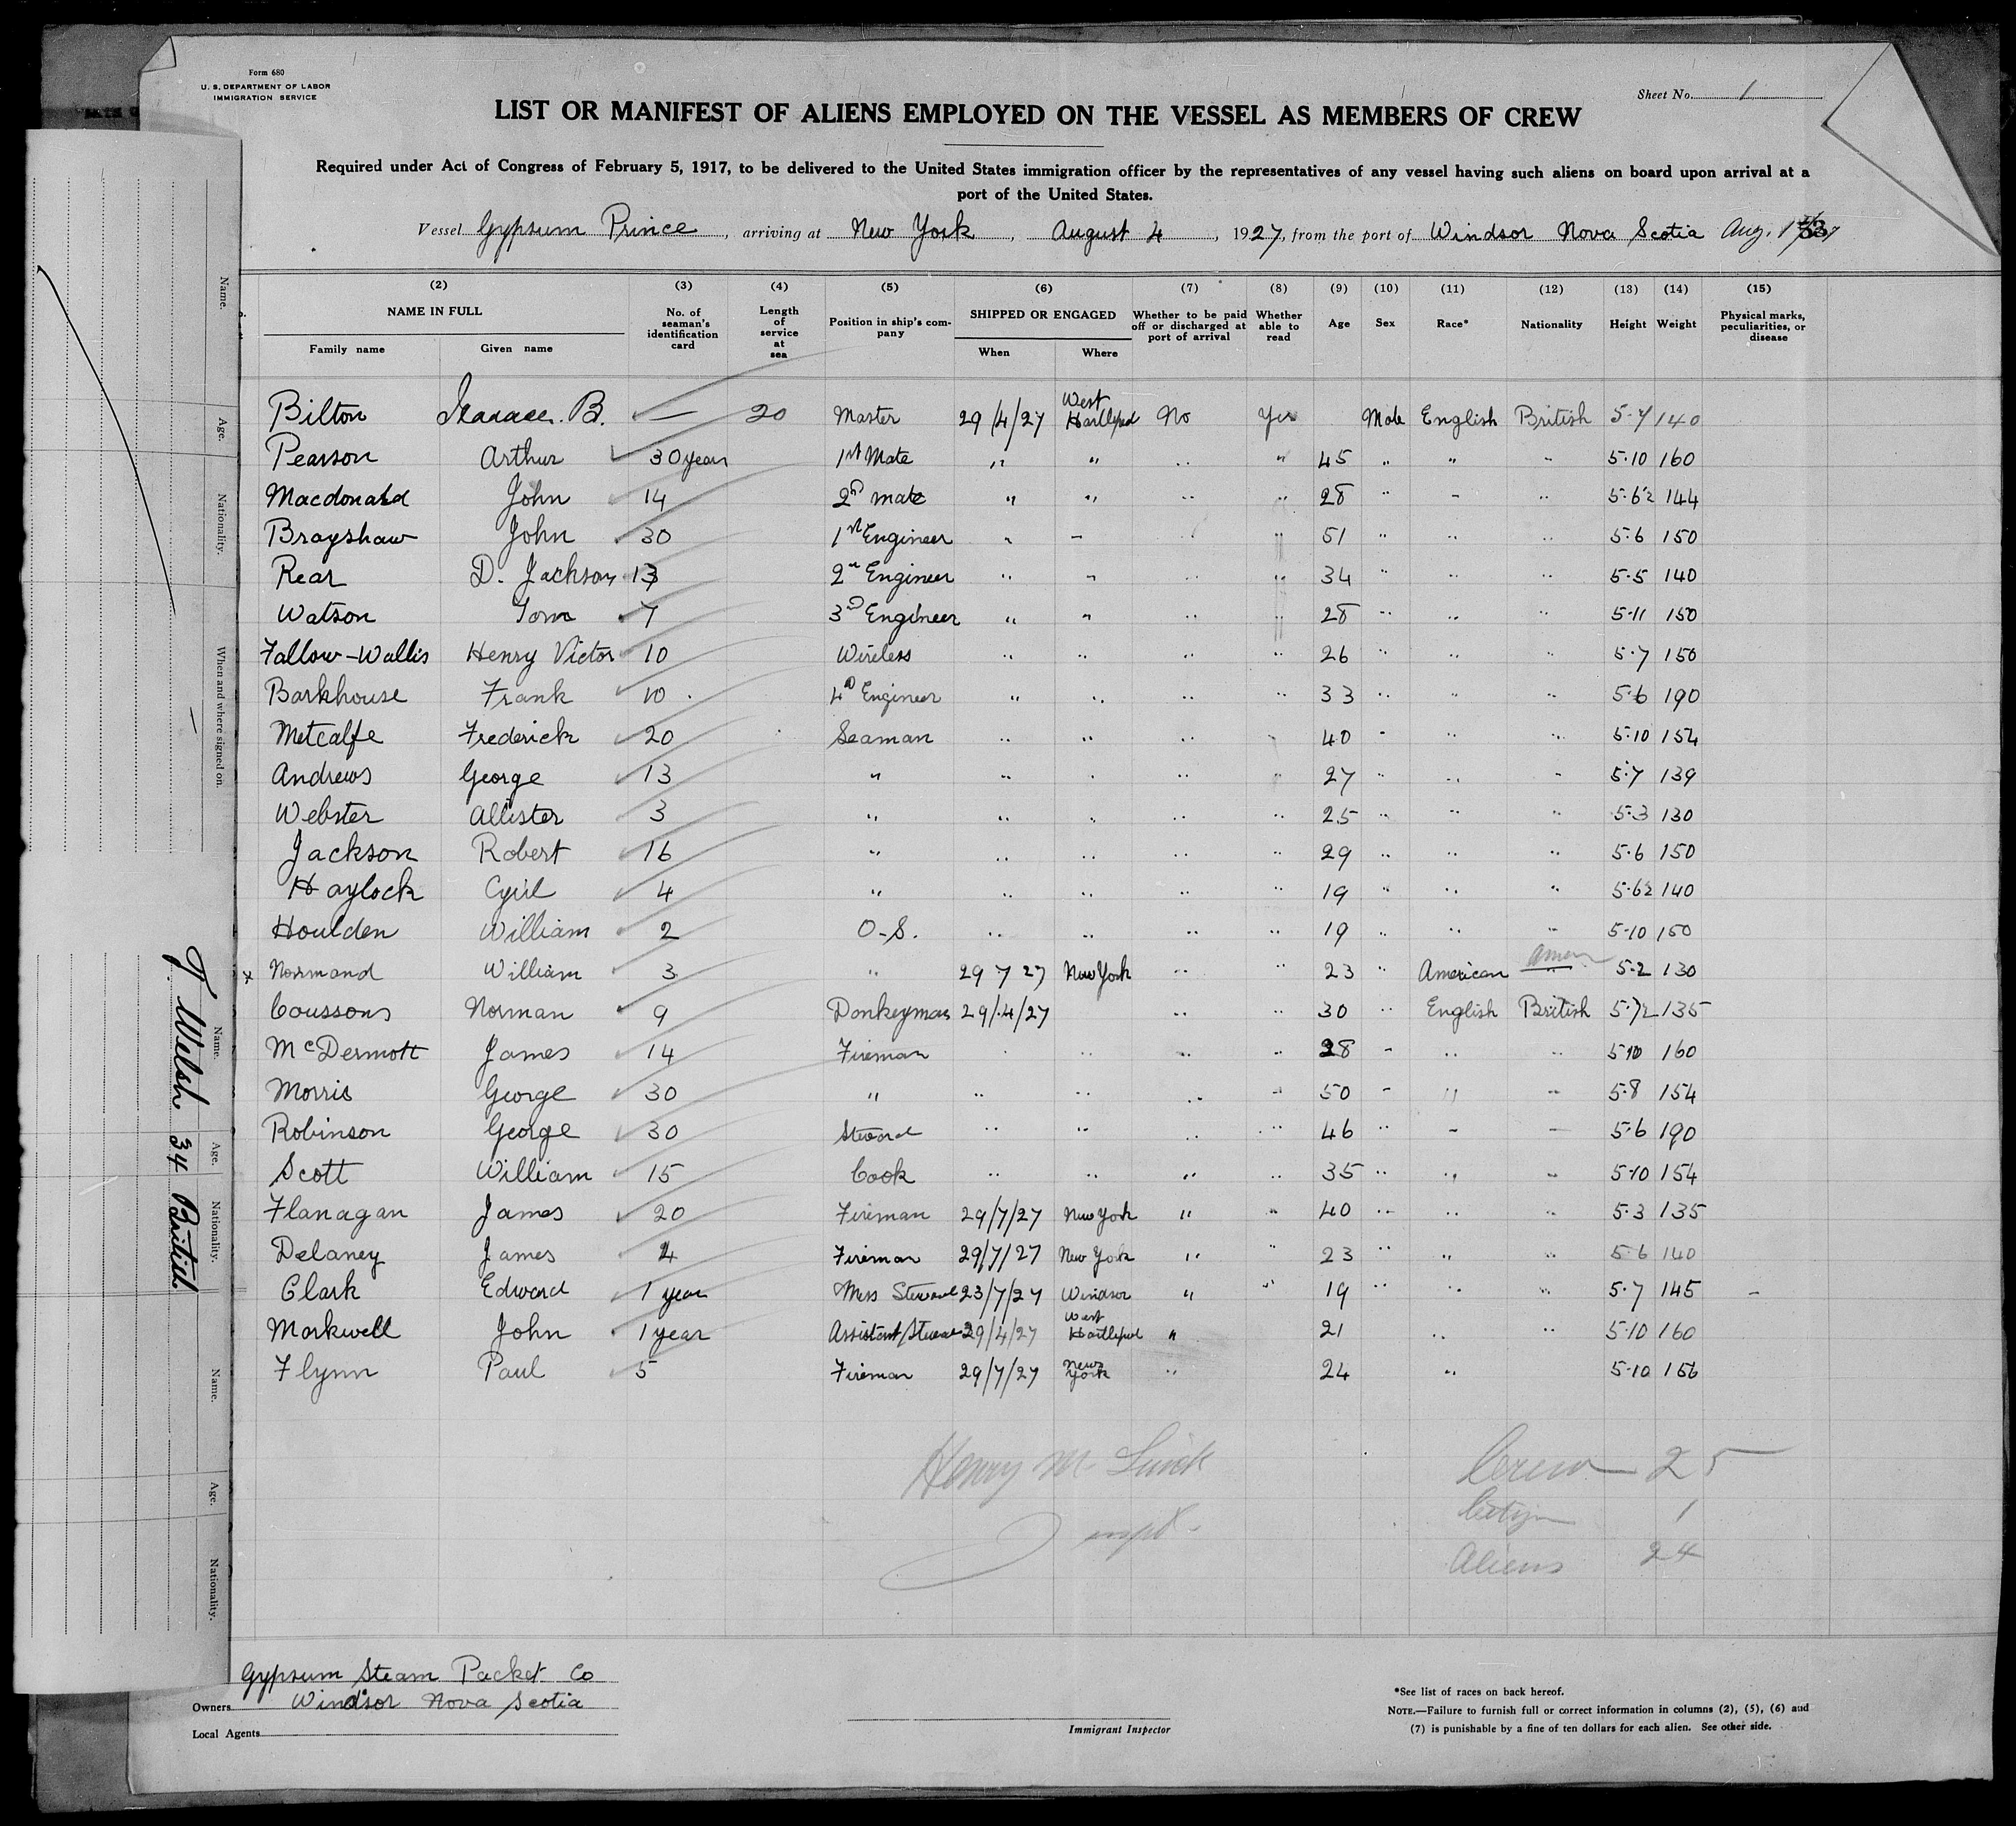 Form 680
U. S. DEPARTMENT OF LABOR
IMMIGRATION SERVICE
Sheet No. 1
LIST OR MANIFEST OF ALIENS EMPLOYED ON THE VESSEL AS MEMBERS OF CREW
Required under Act of Congress of February 5, 1917, to be delivered to the United States immigration officer by the representatives of any vessel having such aliens on board upon arrival at a
port of the United States.
Vessel Gypsum Prince, arriving at New York, August 4, 1927, from the port of Windsor Nova Scotia Aug. 1
(2) (3) (4) (5) (6) (7) (8) (9) (10) (11) (12) (13) (14) (15)
NAME IN FULL
Family name Given name
No. of seaman's identification card
Length of service at sea
Position in ship's company
SHIPPED OR ENGAGED
When Where
Whether to be paid off or discharged at port of arrival
Whether able to read
Age Sex Race* Nationality Height Weight
Physical marks, peculiarities, or disease
Bilton B. — 20 Master 29/4/27 West Hartlepool No Yes Male English British 5-7 140
Pearson Arthur 30 years 1st Mate " " " " 45 " " " 5-10 160
Macdonald John 14 2nd mate " " " " 28 " " " 5-6½ 144
Brayshaw John 30 1st Engineer " " " " 51 " " " 5-6 150
Rear D. Jackson 13 2nd Engineer " " " " 34 " " " 5-5 140
Watson Tom 7 3rd Engineer " " " " 28 " " " 5-11 150
Fallow-Wallis Henry Victor 10 Wireless " " " " 26 " " " 5-7 150
Barkhouse Frank 10 4th Engineer " " " " 33 " " " 5-6 190
Metcalfe Frederick 20 Seaman " " " " 40 " " " 5-10 154
Andrews George 13 " " " " " 27 " " " 5-7 139
Webster Allister 3 " " " " " 25 " " " 5-3 130
Jackson Robert 16 " " " " " 29 " " " 5-6 150
Haylock Cyril 4 " " " " " 19 " " " 5-6½ 140
Houlden William 2 O-S. " " " " 19 " " " 5-10 150
x Normand William 3 " 29 7 27 New York " " 23 " American " Amer 5-2 130
Coussons Norman 9 Donkeyman 29/4/27 " " 30 " English British 5-7½ 135
McDermott James 14 Fireman " " " " 28 " " " 5-10 160
Morris George 30 " " " " " 50 " " " 5-8 154
Robinson George 30 Steward " " " " 46 " " " 5-6 190
Scott William 15 Cook " " " " 35 " " " 5-10 154
Flanagan James 20 Fireman 29/7/27 New York " " 40 " " " 5-3 135
Delaney James 4 Fireman 29/7/27 New York " " 23 " " " 5-6 140
Clark Edward 1 year Mess Steward 23/7/27 Windsor " " 19 " " " 5-7 145 -
Markwell John 1 year Assistant/Steward 29/4/27 West Hartlepool " 21 " " 5-10 160
Flynn Paul 5 Fireman 29/7/27 New York " 24 " 5-10 156
Henry M.
Crew 25
1
Aliens 24
Gypsum Steam Packet Co
Owners Windsor Nova Scotia
Local Agents
Immigrant Inspector
*See list of races on back hereof.
NOTE.—Failure to furnish full or correct information in columns (2), (5), (6) and
(7) is punishable by a fine of ten dollars for each alien. See other side.
Name. Age. Nationality. When and where signed on.
Name. Age. Nationality.
T. Welsh 34 British
Name. Age. Nationality.